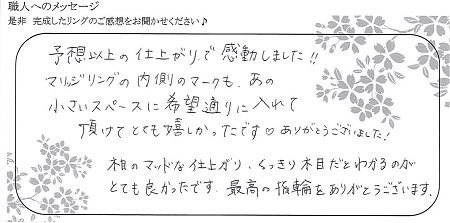 職人へのメッセージ
是非 完成したリングのご感想をお聞かせください♪
予想以上の仕上がりで感動しました!!
マリッジリングの内側のマークも、あの
小さいスペースに希望通りに入れて
頂けてとても嬉しかったです♡ありがとうございました!
木目のマッドな仕上がり、くっきり木目だとわかるのが
とても良かったです。最高の指輪をありがとうございます。